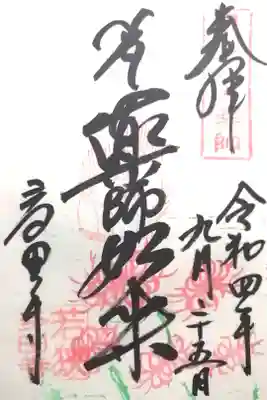 奉拝
令和四年
九月二十五日
薬師如来
高田寺